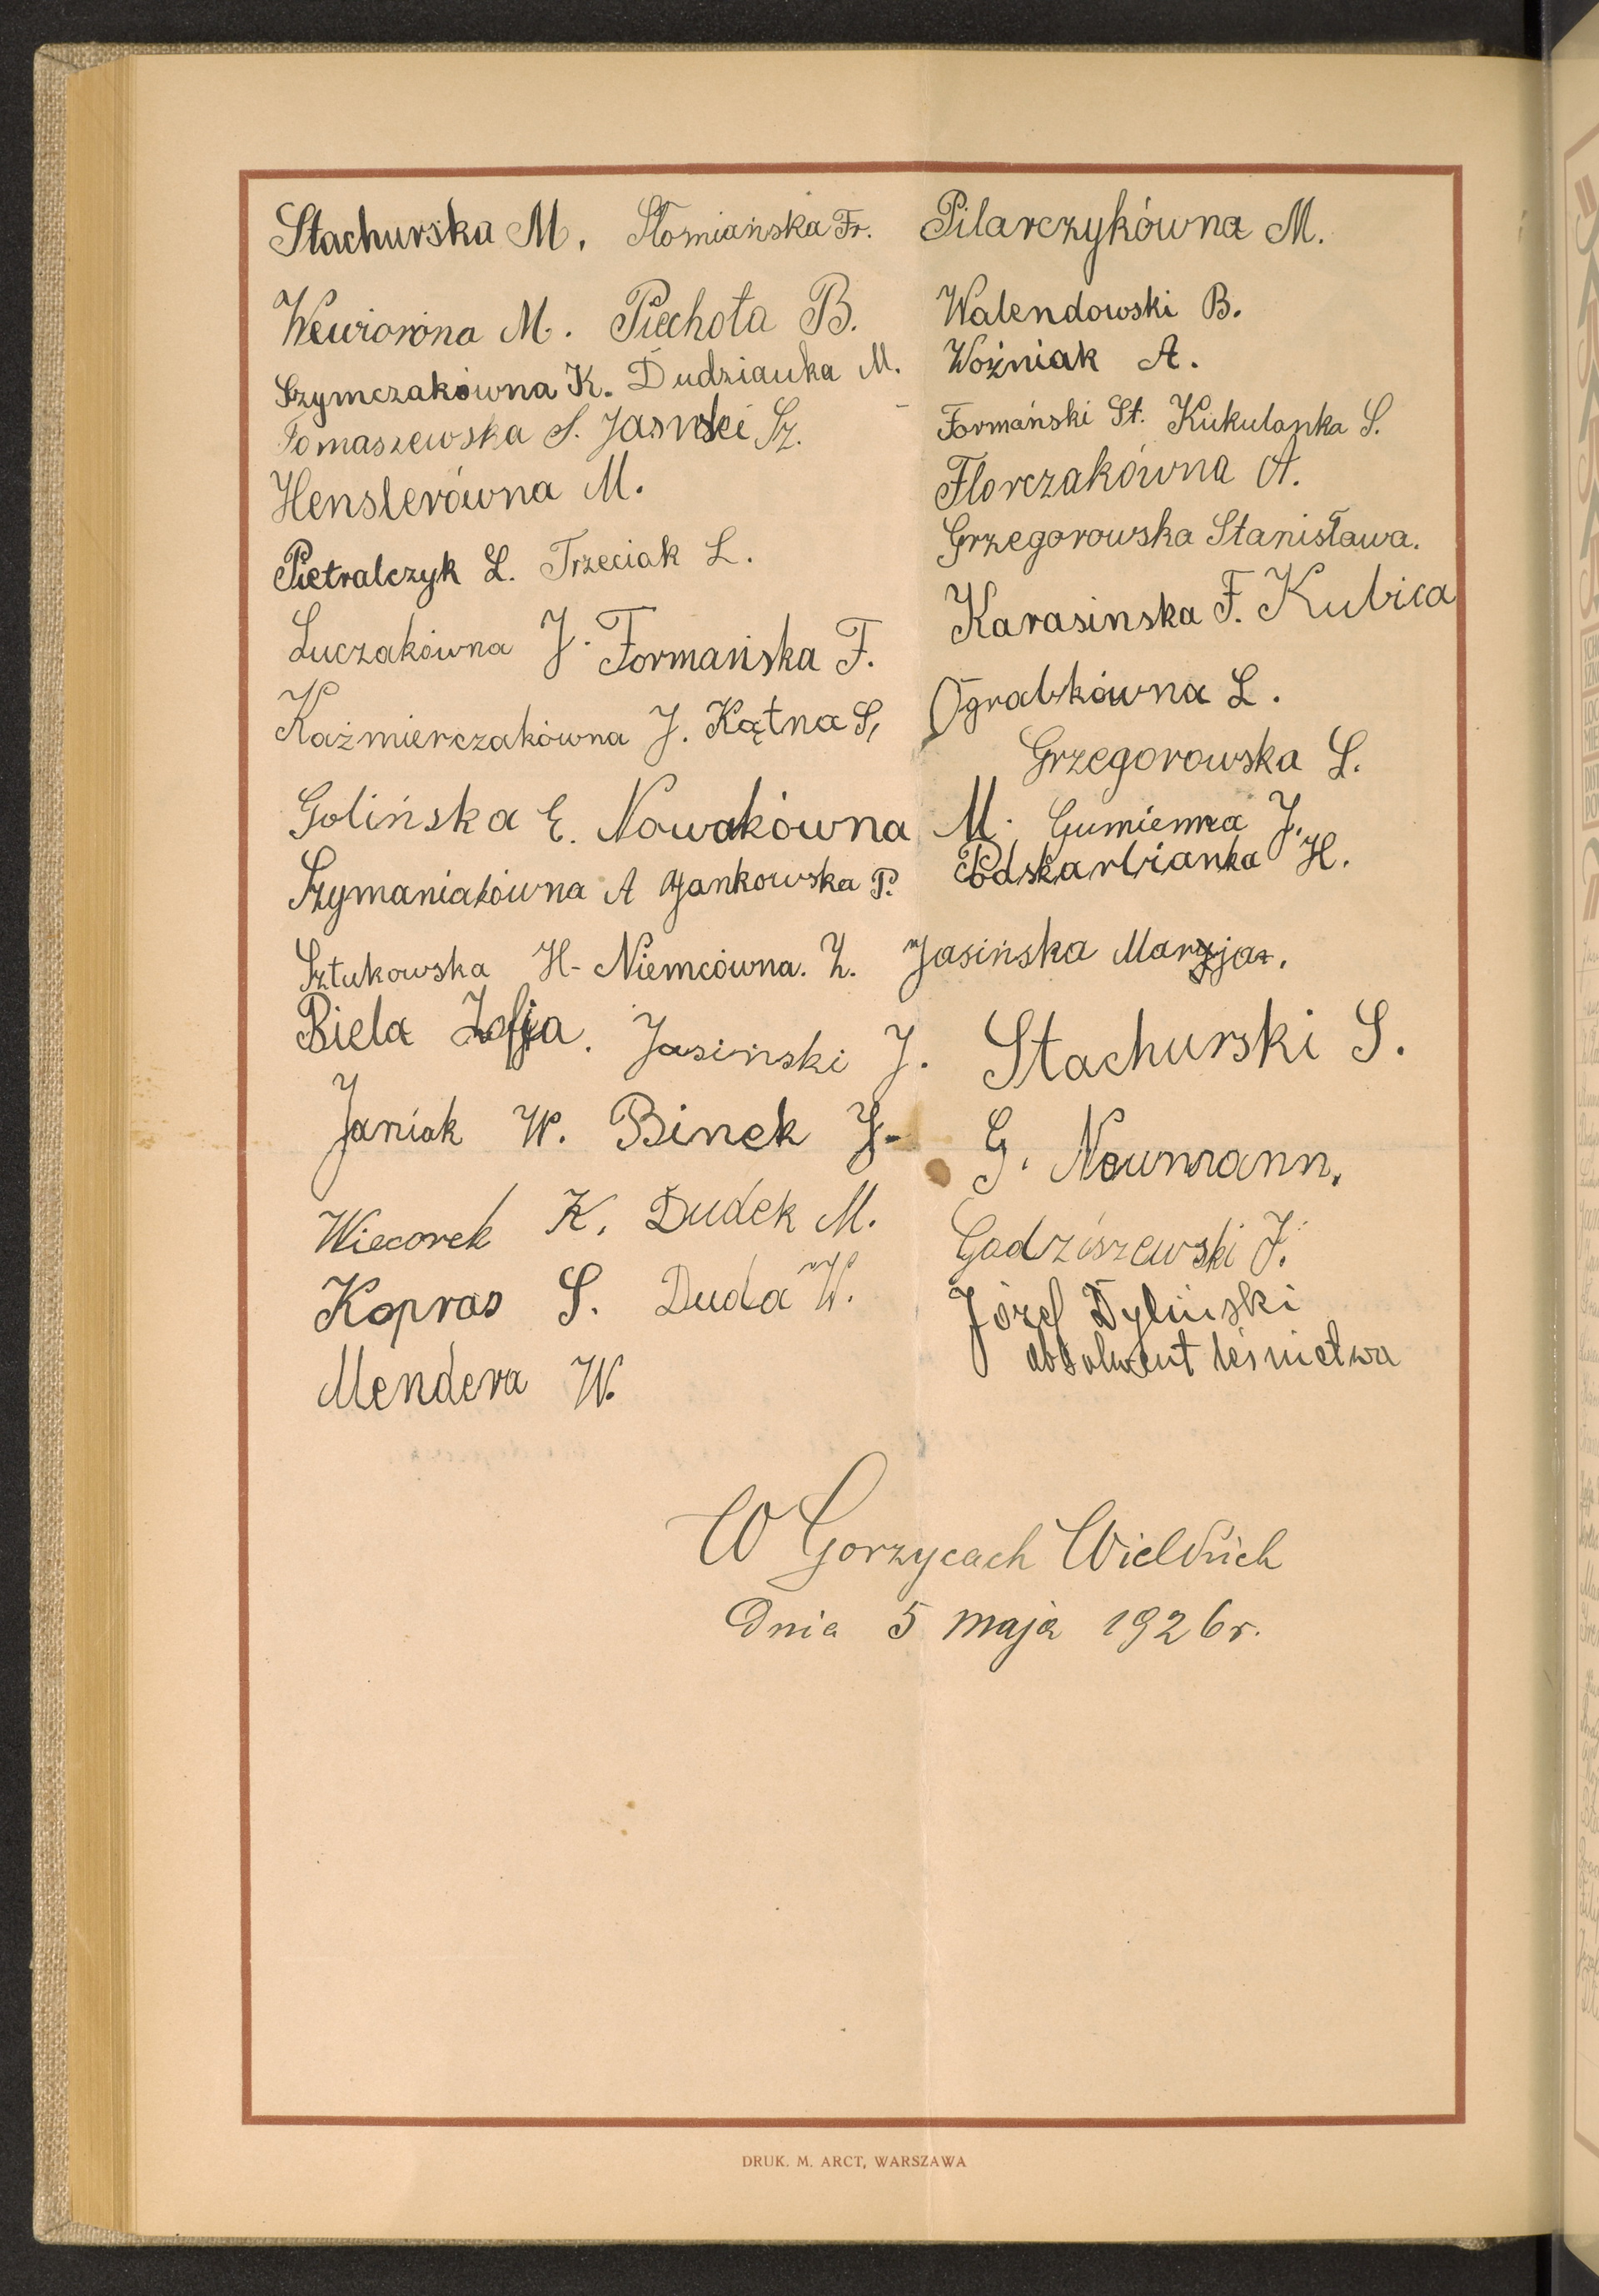 Stachurska M. Słomiańska Fr. Pilarczykówna M.
Wewiorona M. Piechota B. Walendowski B.
Szymczakówna K. Dudzianka M. Woźniak A.
Tomaszewska S. Jasnski Sz. Formański St. Kukulanka S.
Henslerówna M. Florczakówna A.
Pietralczyk L. Trzeciak L. Grzegorowska Stanisława.
Luczakówna J. Formańska F. Karasinska F. Kubica
Kaźmierczakówna J. Kątna S, Ograbkówna L.
Grzegorowska L.
Golińska E. Nowakówna M. Gumienna J.
Szymaniakówna A Jankowska P. Podskarbianka H.
Sztukowska H- Niemcówna. Z. Jasińska Marja.
Biela Zofja. Jasiński J. Stachurski S.
Janiak W. Binek J- G. Neumann.
Wiecorek K. Dudek M. Gadziszewski J.
Kopras S. Duda W. Józef Dyliński
absolwent leśnictwa
Mendera W.
W Gorzycach Wielkich
Dnia 5 maja 1926 r.
DRUK. M. ARCT, WARSZAWA